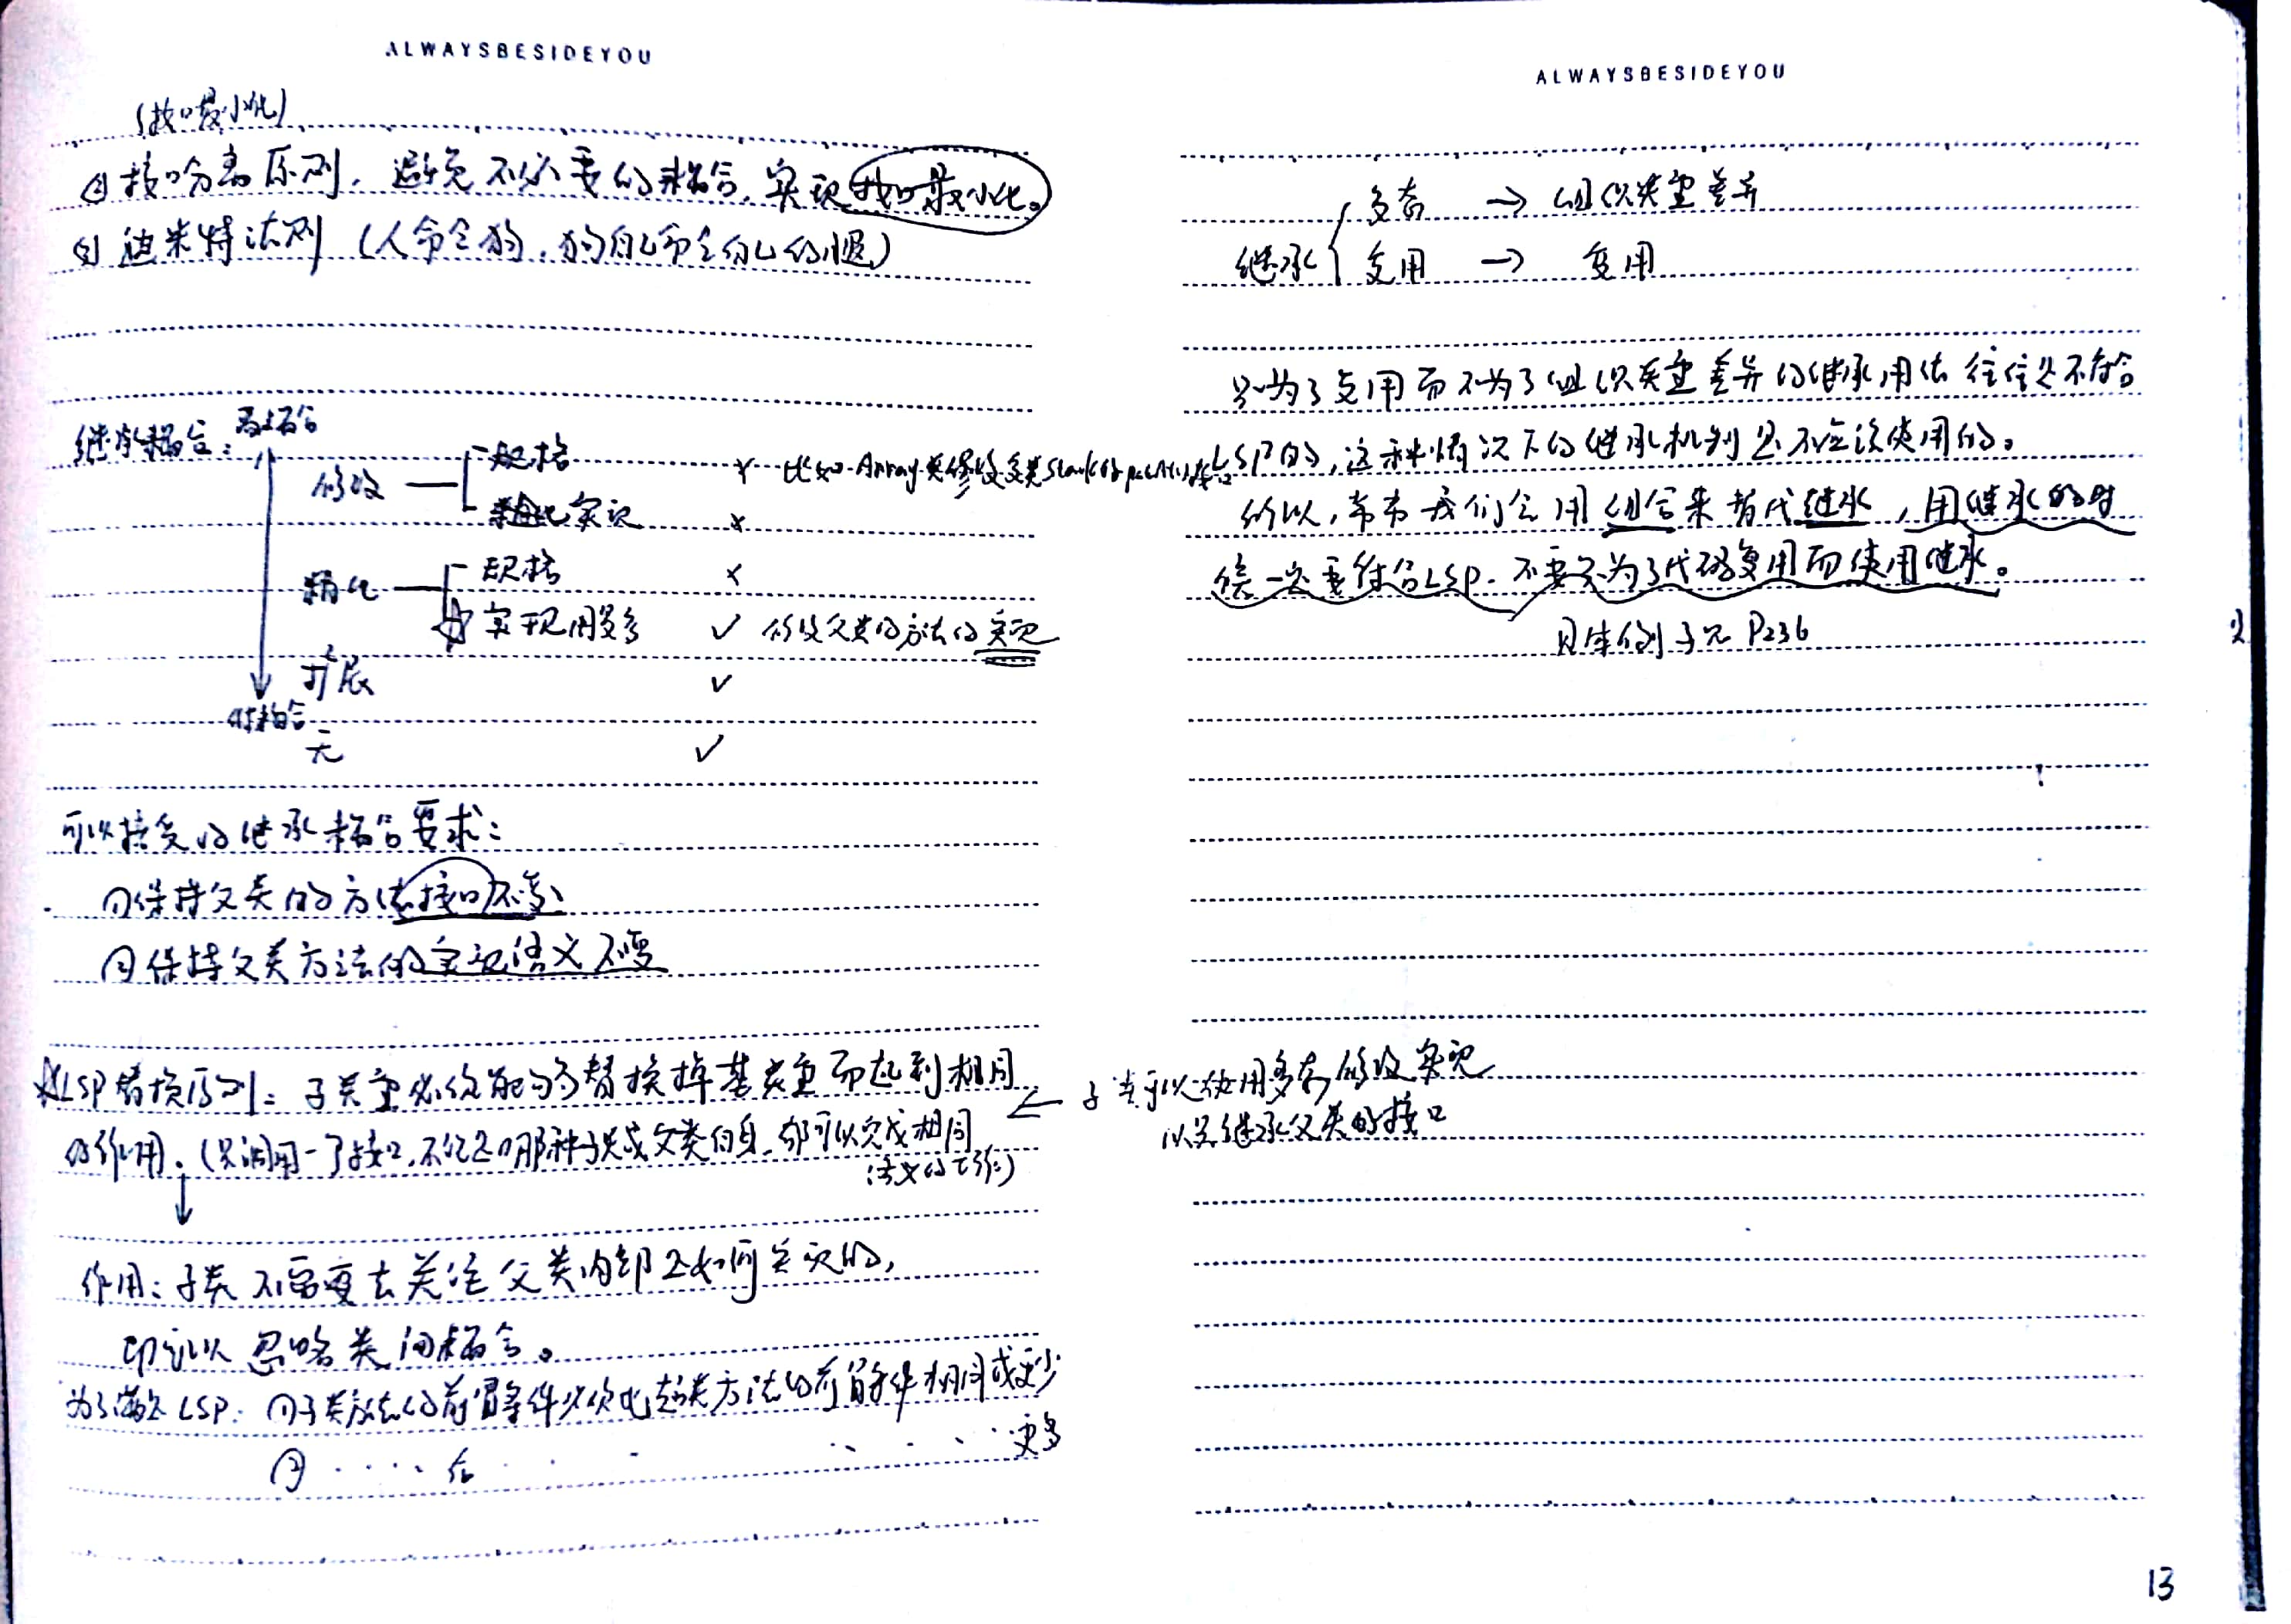 ALWAYSBESIDEYOU
(接口最小化)
④ 接口分离原则. 避免不必要的耦合. 实现接口最小化。
⑤ 迪米特法则 (人命令狗. 狗自己命令自己的腿)
继承耦合: 高耦合
修改 规格 × 比如 Array类修改父类Stack的
粗化实现 ×
精化 规格 ×
实现用很多 ✓ 修改父类的方法的实现
扩展 ✓
低耦合
无 ✓
可以接受的继承耦合要求:
① 保持父类的方法接口不变
② 保持父类方法的实现语义不变
☆LSP替换原则: 子类型必须能够替换掉基类型而起到相同
的作用. (只调用一个接口,不论是哪种子类或父类自身,都可以完成相同
语义的工作)
↓
作用: 子类不需要去关注父类内部是如何实现的,
即可以忽略类间耦合。
为了满足LSP: ①子类方法的前置条件必须比超类方法的前置条件相同或更少
② · · · · 后 · · · · · · 更多
ALWAYSBESIDEYOU
继承 多态 → 组织类型差异
复用 → 复用
只为了复用而不为了组织类型差异的继承用法往往是不符合
LSP的,这种情况下的继承机制是不应该使用的。
所以,常常我们会用组合来替代继承,用继承的时
候一定要符合LSP. 不要只为了代码复用而使用继承。
具体例子见 P236
← 子类可以使用多态修改实现
以及继承父类的接口
13